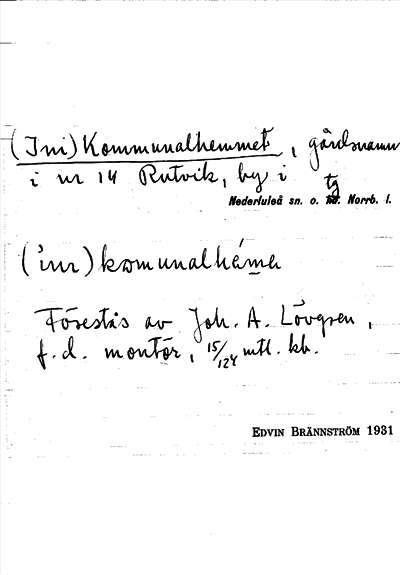 (Ini) Kommunalhemmet, gårdsnamn
i nr 14 Rutvik, by i
Nederluleå sn. o. tg. Norrb. l.
(inr) komunalhéma
Förestås av Joh. A. Lövgren,
f. d. montör, 15/124 mtl. kb.
EDVIN BRÄNNSTRÖM 1931